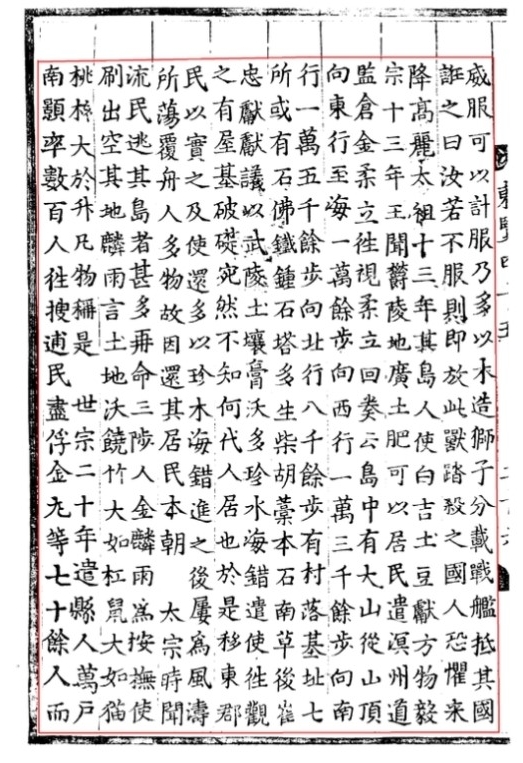 威服可以計服乃多以木造獅子分載戰艦抵其國
誑之曰汝若不服則即放此獸踏殺之國人恐懼来
降高麗太祖十三年其島人使白吉土豆獻方物毅
宗十三年王聞欝陵地廣土肥可以居民遣溟州道
監倉金柔立徃視柔立回奏云島中有大山從山頂
向東行至海一萬餘步向西行一萬三千餘步向南
行一萬五千餘步向北行八千餘步有村落基址七
所或有石佛鐵鍾石塔多生柴胡藁本石南草後崔
忠獻獻議以武陵土壤膏沃多珍水海錯遣使徃觀
之有屋基破礎宛然不知何代人居也於是移東郡
民以實之及使還多以珍木海錯進之後屢為風濤
所蕩覆舟人多物故因還其居民本朝 太宗時聞
流民逃其島者甚多再命三陟人金麟雨為按撫使
刷出空其地麟雨言土地沃饒竹大如杠鼠大如猫
桃核大於升凡物稱是 世宗二十年遣縣人萬戶
南顥率數百人徃搜逋民盡俘金丸等七十餘人而
東覽四十五
二十六